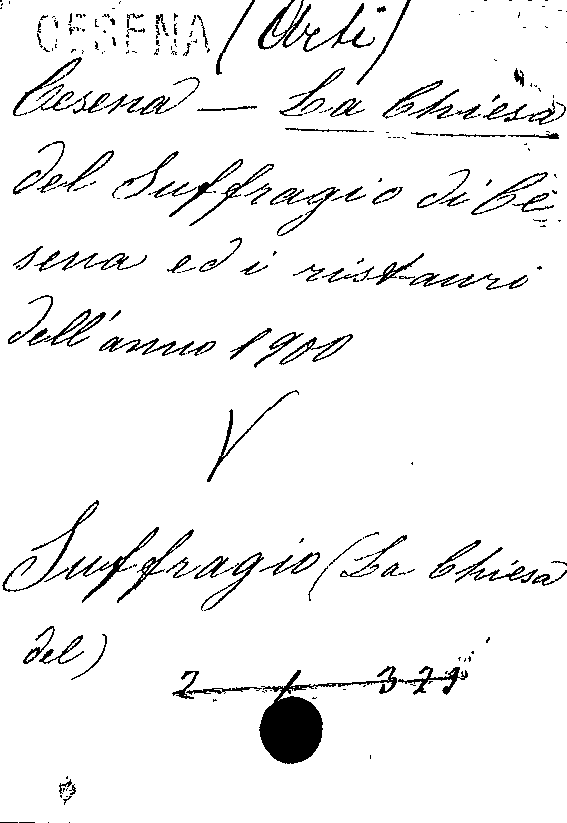 CESENA (Arti)
Cesena — La Chiesa
del Suffragio di Ce=
sena ed i ristauri
dell'anno 1900
V
Suffragio (La Chiesa
del)